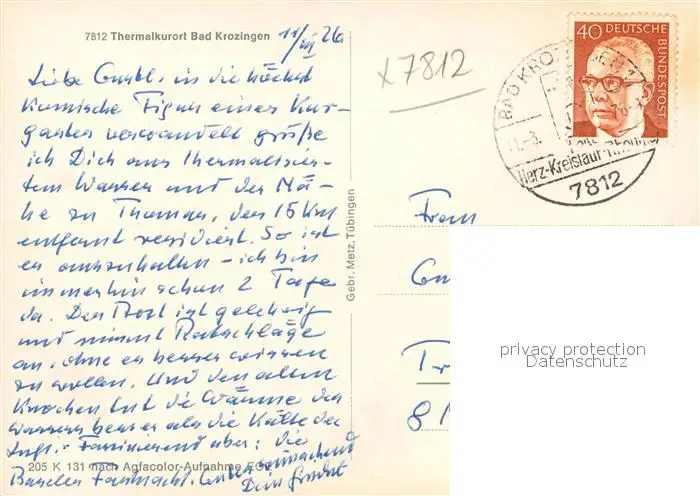 7812 Thermalkurort Bad Krozingen
11/III 76
Liebe Gustl, in die höchst
komische Figur eines Kur-
gastes verwandelt grüße
ich Dich aus thermalisier-
tem Wasser und der Nä-
he zu Thomas, der 15 km
entfernt residiert. So ist
es auszuhalten – ich bin
immerhin schon 2 Tage
da. Der Rost ist gelehrig
und nimmt Ratschläge
an, ohne es besser wissen
zu wollen. Und den alten
Knochen tut die Wärme des
Wassers besser als die Kälte der
Luft. Faszinierend aber: die
Basler Fastnacht.
Dein
205 K 131 nach Agfacolor-Aufnahme
Gebr. Metz, Tübingen
x 7812
40 DEUTSCHE BUNDESPOST
BAD KROZINGEN 1
11.-3.
Herz-Kreislauf-
7812
Frau
privacy protection
Datenschutz